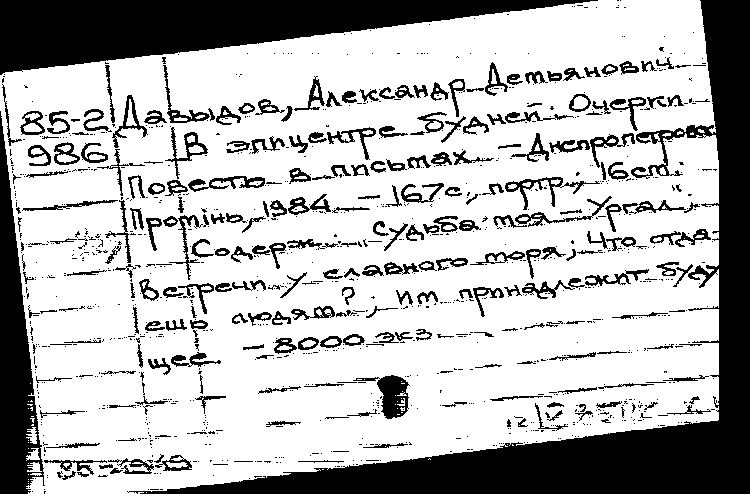 85-2 Давыдов, Александр Демьянович
986 В эпицентре будней. Очерки.
Повесть в письмах. – Днепропетровск
Промiнь, 1984. – 167с., портр.; 16см.
Содерж.: "Судьба моя – Ургал";
Встречи у славного моря; Что отда-
ешь людям?; Им принадлежит буду
щее. – 8000 экз.
85-4949